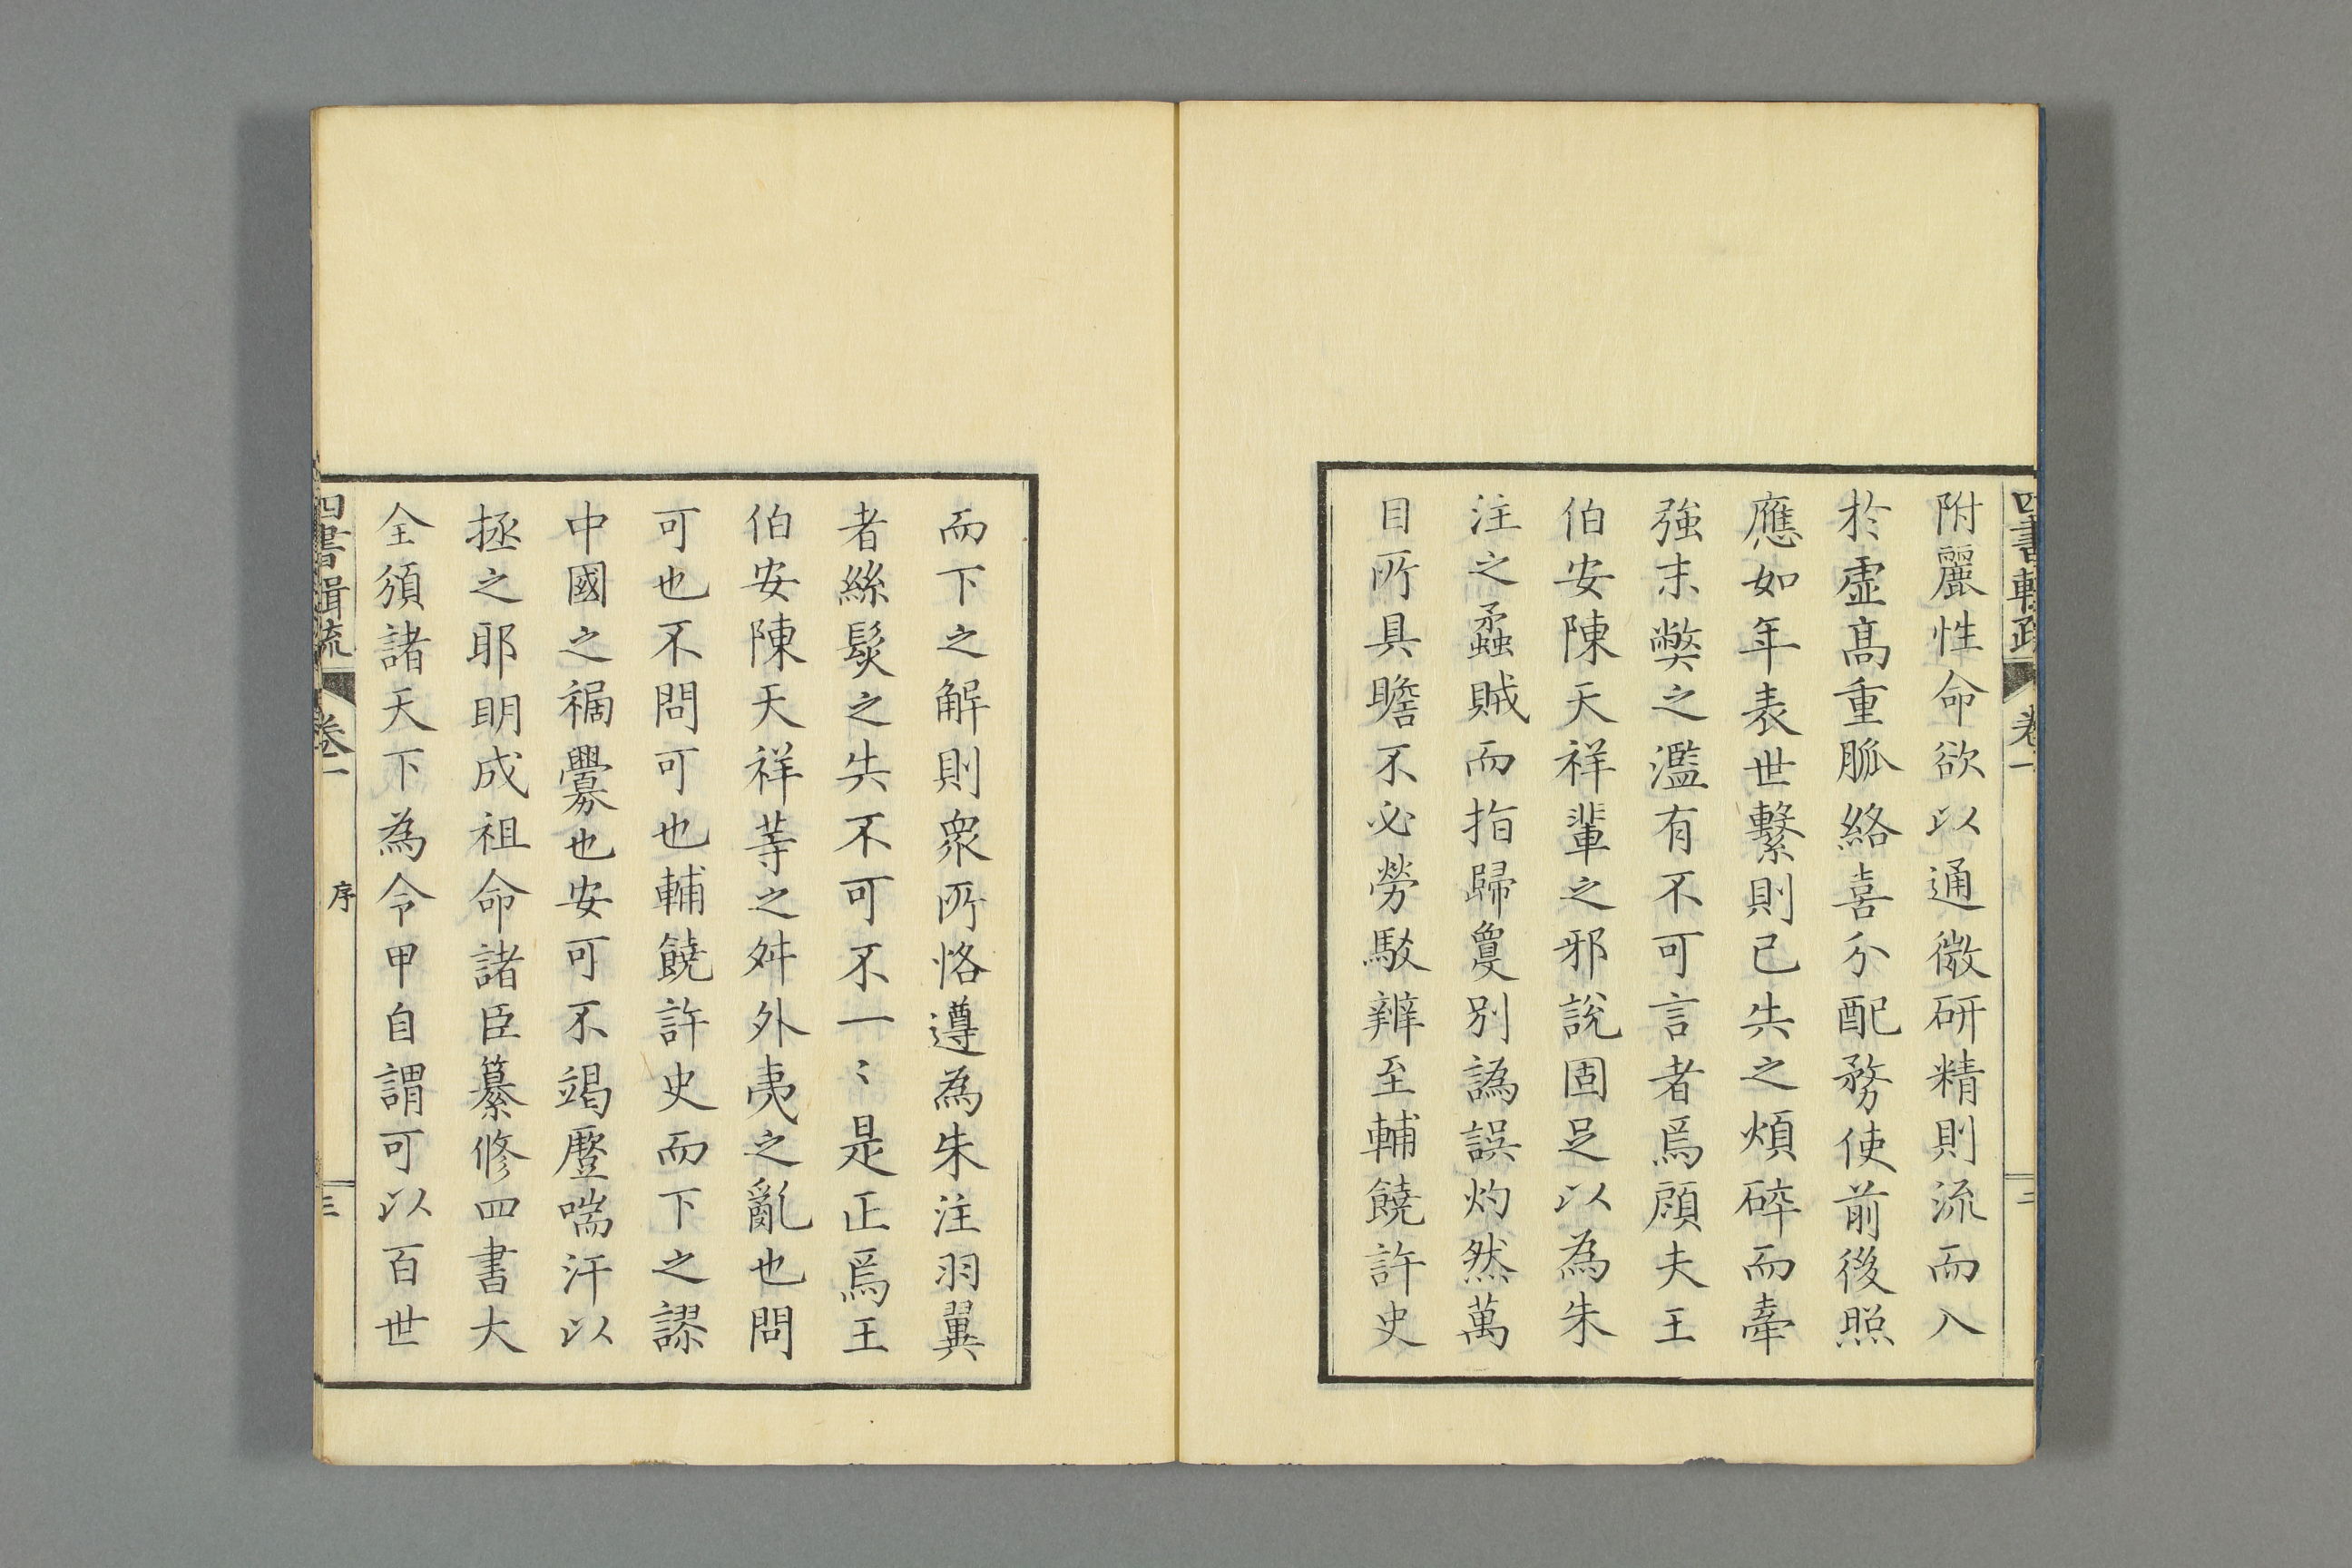 四書輯疏 卷一 二
附麗性命欲以通微研精則流而入
於虛高重脈絡喜分配務使前後照
應如年表世繫則已失之煩碎而牽
強末弊之濫有不可言者焉頋夫王
伯安陳天祥輩之邪說固足以為朱
注之蟊賊而指歸敻別譌誤灼然萬
目所具瞻不必勞駁辨至輔饒許史
而下之解則衆所恪遵為朱注羽翼
者絲髮之失不可不一〻是正焉王
伯安陳天祥等之舛外夷之亂也問
可也不問可也輔饒許史而下之謬
中國之禍釁也安可不竭蹷喘汗以
拯之耶明成祖命諸臣纂修四書大
全頒諸天下為令甲自謂可以百世
四書輯疏 卷一 序 三